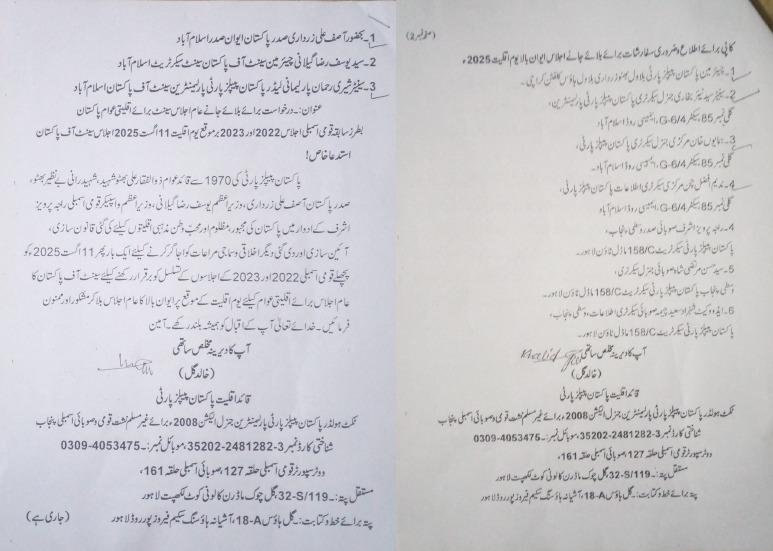 1۔ بحضور آصف علی زرداری صدر پاکستان ایوان صدر اسلام آباد
2۔ سید یوسف رضا گیلانی چیئرمین سینٹ آف پاکستان سینٹ سیکرٹریٹ اسلام آباد
3۔ سینیٹر شیری رحمان پارلیمانی لیڈر پاکستان پیپلز پارٹی پارلیمنٹرین سینٹ آف پاکستان اسلام آباد
عنوان:۔ درخواست برائے بلائے جانے عام اجلاس سینٹ برائے اقلیتی عوام پاکستان
بطرز سابقہ قومی اسمبلی اجلاس 2022 اور 2023 بر موقع یوم اقلیت 11 اگست 2025 اجلاس سینٹ آف پاکستان
استدعا خاص!
پاکستان پیپلز پارٹی کی 1970 سے قائد عوام ذوالفقار علی بھٹو شہید، شہید رانی بے نظیر بھٹو،
صدر پاکستان آصف علی زرداری، وزیر اعظم یوسف رضا گیلانی، وزیر اعظم و اسپیکر قومی اسمبلی راجہ پرویز
اشرف کے ادوار میں پاکستان کی مجبور، مظلوم اور محب وطن مذہبی اقلیتوں کیلئے کی گئی قانون سازی،
آئین سازی اور دی گئی دیگر اخلاقی و سماجی مراعات کو اجاگر کرنے کیلئے ایک بار پھر 11 اگست 2025ء کو
پچھلے قومی اسمبلی 2022 اور 2023 کے اجلاسوں کے تسلسل کو برقرار رکھنے کیلئے سینٹ آف پاکستان کا
عام اجلاس برائے اقلیتی عوام کیلئے یوم اقلیت کے موقع پر ایوان بالا کا عام اجلاس بلا کر مشکور اور ممنون
فرمائیں۔ خدائے تعالیٰ آپ کے اقبال کو ہمیشہ بلند رکھے۔ آمین
آپ کا دیرینہ مخلص ساتھی
(خالد گل)
قائد اقلیت پاکستان پیپلز پارٹی
ٹکٹ ہولڈر پاکستان پیپلز پارٹی پارلیمنٹرین جنرل الیکشن 2008، برائے غیر مسلم نشست قومی و صوبائی اسمبلی پنجاب
شناختی کارڈ نمبر 3-2481282-35202 موبائل نمبر:۔ 0309-4053475
ووٹر سپورٹر قومی اسمبلی حلقہ 127، صوبائی اسمبلی حلقہ 161،
مستقل پتہ:۔ 32-S/119، گل چوک ماڈرن کالونی کوٹ لکھپت لاہور
پتہ برائے خط و کتابت:۔ گل ہاؤس 18-A، آشیانہ ہاؤسنگ سکیم فیروز پور روڈ لاہور
(جاری ہے)
(صفحہ نمبر 2)
کاپی برائے اطلاع و ضروری سفارشات برائے بلائے جانے اجلاس ایوان بالا یوم اقلیت 2025ء
1۔ چیئرمین پاکستان پیپلز پارٹی بلاول بھٹو زرداری بلاول ہاؤس کلفٹن کراچی۔
2۔ سینیٹر سید نیئر بخاری جنرل سیکرٹری پاکستان پیپلز پارٹی پارلیمنٹرین،
گلی نمبر 85، سیکٹر G-6/4، ایمبیسی روڈ اسلام آباد
3۔ ہمایوں خان مرکزی جنرل سیکرٹری پاکستان پیپلز پارٹی،
گلی نمبر 85، سیکٹر G-6/4، ایمبیسی روڈ اسلام آباد۔
4۔ ندیم افضل چن مرکزی سیکرٹری اطلاعات پاکستان پیپلز پارٹی،
گلی نمبر 85، سیکٹر G-6/4، ایمبیسی روڈ اسلام آباد
4۔ راجہ پرویز اشرف صوبائی صدر وسطی پنجاب،
پاکستان پیپلز پارٹی سیکرٹریٹ 158/C ماڈل ٹاؤن لاہور۔
5۔ سید حسن مرتضیٰ شاہ صوبائی جنرل سیکرٹری،
وسطی پنجاب پاکستان پیپلز پارٹی سیکرٹریٹ 158/C ماڈل ٹاؤن لاہور۔
6۔ ایڈووکیٹ شہزاد سعید چیمہ صوبائی سیکرٹری اطلاعات، وسطی پنجاب،
پاکستان پیپلز پارٹی سیکرٹریٹ 158/C ماڈل ٹاؤن لاہور۔
آپ کا دیرینہ مخلص ساتھی
Khalid Gill
(خالد گل)
قائد اقلیت پاکستان پیپلز پارٹی
ٹکٹ ہولڈر پاکستان پیپلز پارٹی پارلیمنٹرین جنرل الیکشن 2008، برائے غیر مسلم نشست قومی و صوبائی اسمبلی پنجاب
شناختی کارڈ نمبر 3-2481282-35202، موبائل نمبر:۔ 0309-4053475
ووٹر سپورٹر قومی اسمبلی حلقہ 127، صوبائی اسمبلی حلقہ 161،
مستقل پتہ:۔ 32-S/119، گل چوک ماڈرن کالونی کوٹ لکھپت لاہور
پتہ برائے خط و کتابت:۔ گل ہاؤس 18-A، آشیانہ ہاؤسنگ سکیم فیروز پور روڈ لاہور